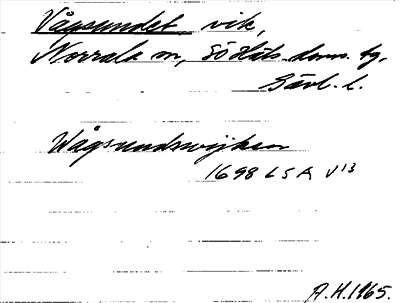 Vågsundet, vik,
Norrala sn, Sö Häls. doms. tg,
Gävl. l.
Wågsundzwijken
1698 LSA V13
A.H. 1965.